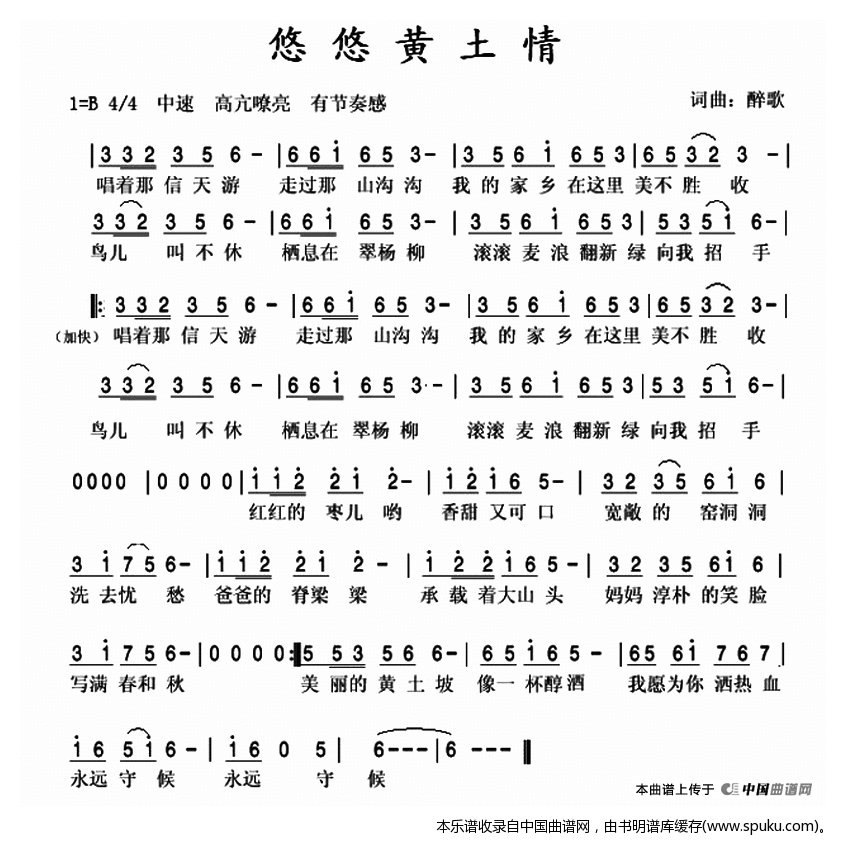 悠悠黄土情
1=B 4/4 中速 高亢嘹亮 有节奏感 词曲：醉歌
|3 3 2 3 5 6 - |6 6 i 6 5 3 - |3 5 6 i 6 5 3 |6 5 3 2 3 - |
唱着那 信天游 走过那 山沟沟 我的家乡在这里 美不胜收
3 3 2 3 5 6 - |6 6 i 6 5 3 - |3 5 6 i 6 5 3 |3 5 5 i 6 - |
鸟儿 叫不休 栖息在 翠杨柳 滚滚麦浪翻新绿 向我招手
‖: 3 3 2 3 5 6 - |6 6 i 6 5 3 - |3 5 6 i 6 5 3 |6 5 3 2 3 - |
（加快） 唱着那 信天游 走过那 山沟沟 我的家乡在这里 美不胜收
3 3 2 3 5 6 - |6 6 i 6 5 3 · - |3 5 6 i 6 5 3 |5 3 5 i 6 - |
鸟儿 叫不休 栖息在 翠杨柳 滚滚麦浪翻新绿 向我招手
0000 |0 0 0 0 |i i 2 2 i 2 - |i 2 i 6 5 - |3 2 3 5 6 i 6 |
红红的 枣儿哟 香甜又可口 宽敞的 窑洞洞
3 i 7 5 6 - |i i 2 2 i 2 - |i 2 2 i 6 5 - |3 2 3 5 6 i 6 |
洗去忧愁 爸爸的 脊梁梁 承载着大山头 妈妈淳朴的笑脸
3 i 7 5 6 - |0 0 0 0 :‖ 5 5 3 5 6 6 - |6 5 i 6 5 - |6 5 6 i 7 6 7 |
写满春和秋 美丽的黄土坡 像一杯醇酒 我愿为你洒热血
i 6 5 i 6 - | i 6 0 5 | 6 - - - |6 - - ‖
永远守候 永远 守候
本曲谱上传于 中国曲谱网
本乐谱收录自中国曲谱网，由书明谱库缓存(www.spuku.com)。